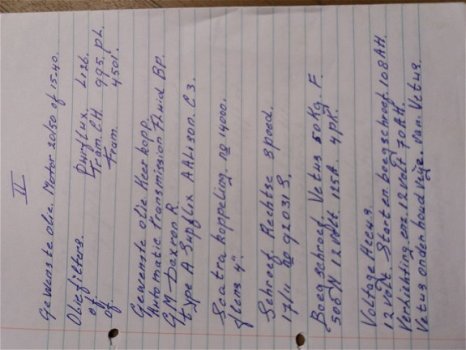 II
Gewenste olie. Motor 20/50 of 15.40.
Oliefilters. Purflux. L126.
of. Fram. CH. 995. PL.
of. Fram. 4501.
Gewenste olie Keerkopp.
Automatic Transmission Fluid BP.
G.M. Dexron R
Type A. Supflix Allison. C3.
Scatra koppeling. no 14000.
flens 4".
Schroef. Rechtse spoed.
17/11 no 92031 S.
Boegschroef Vetus 50 Kg. F.
500 N 12 volt 125A. 4 pk.
Voltage Accu's
12 volt. Start en boegschroef. 108 AH.
Verlichting enz 12 volt 70 AH.
Vetus onderhoud vrije. van Vetus.